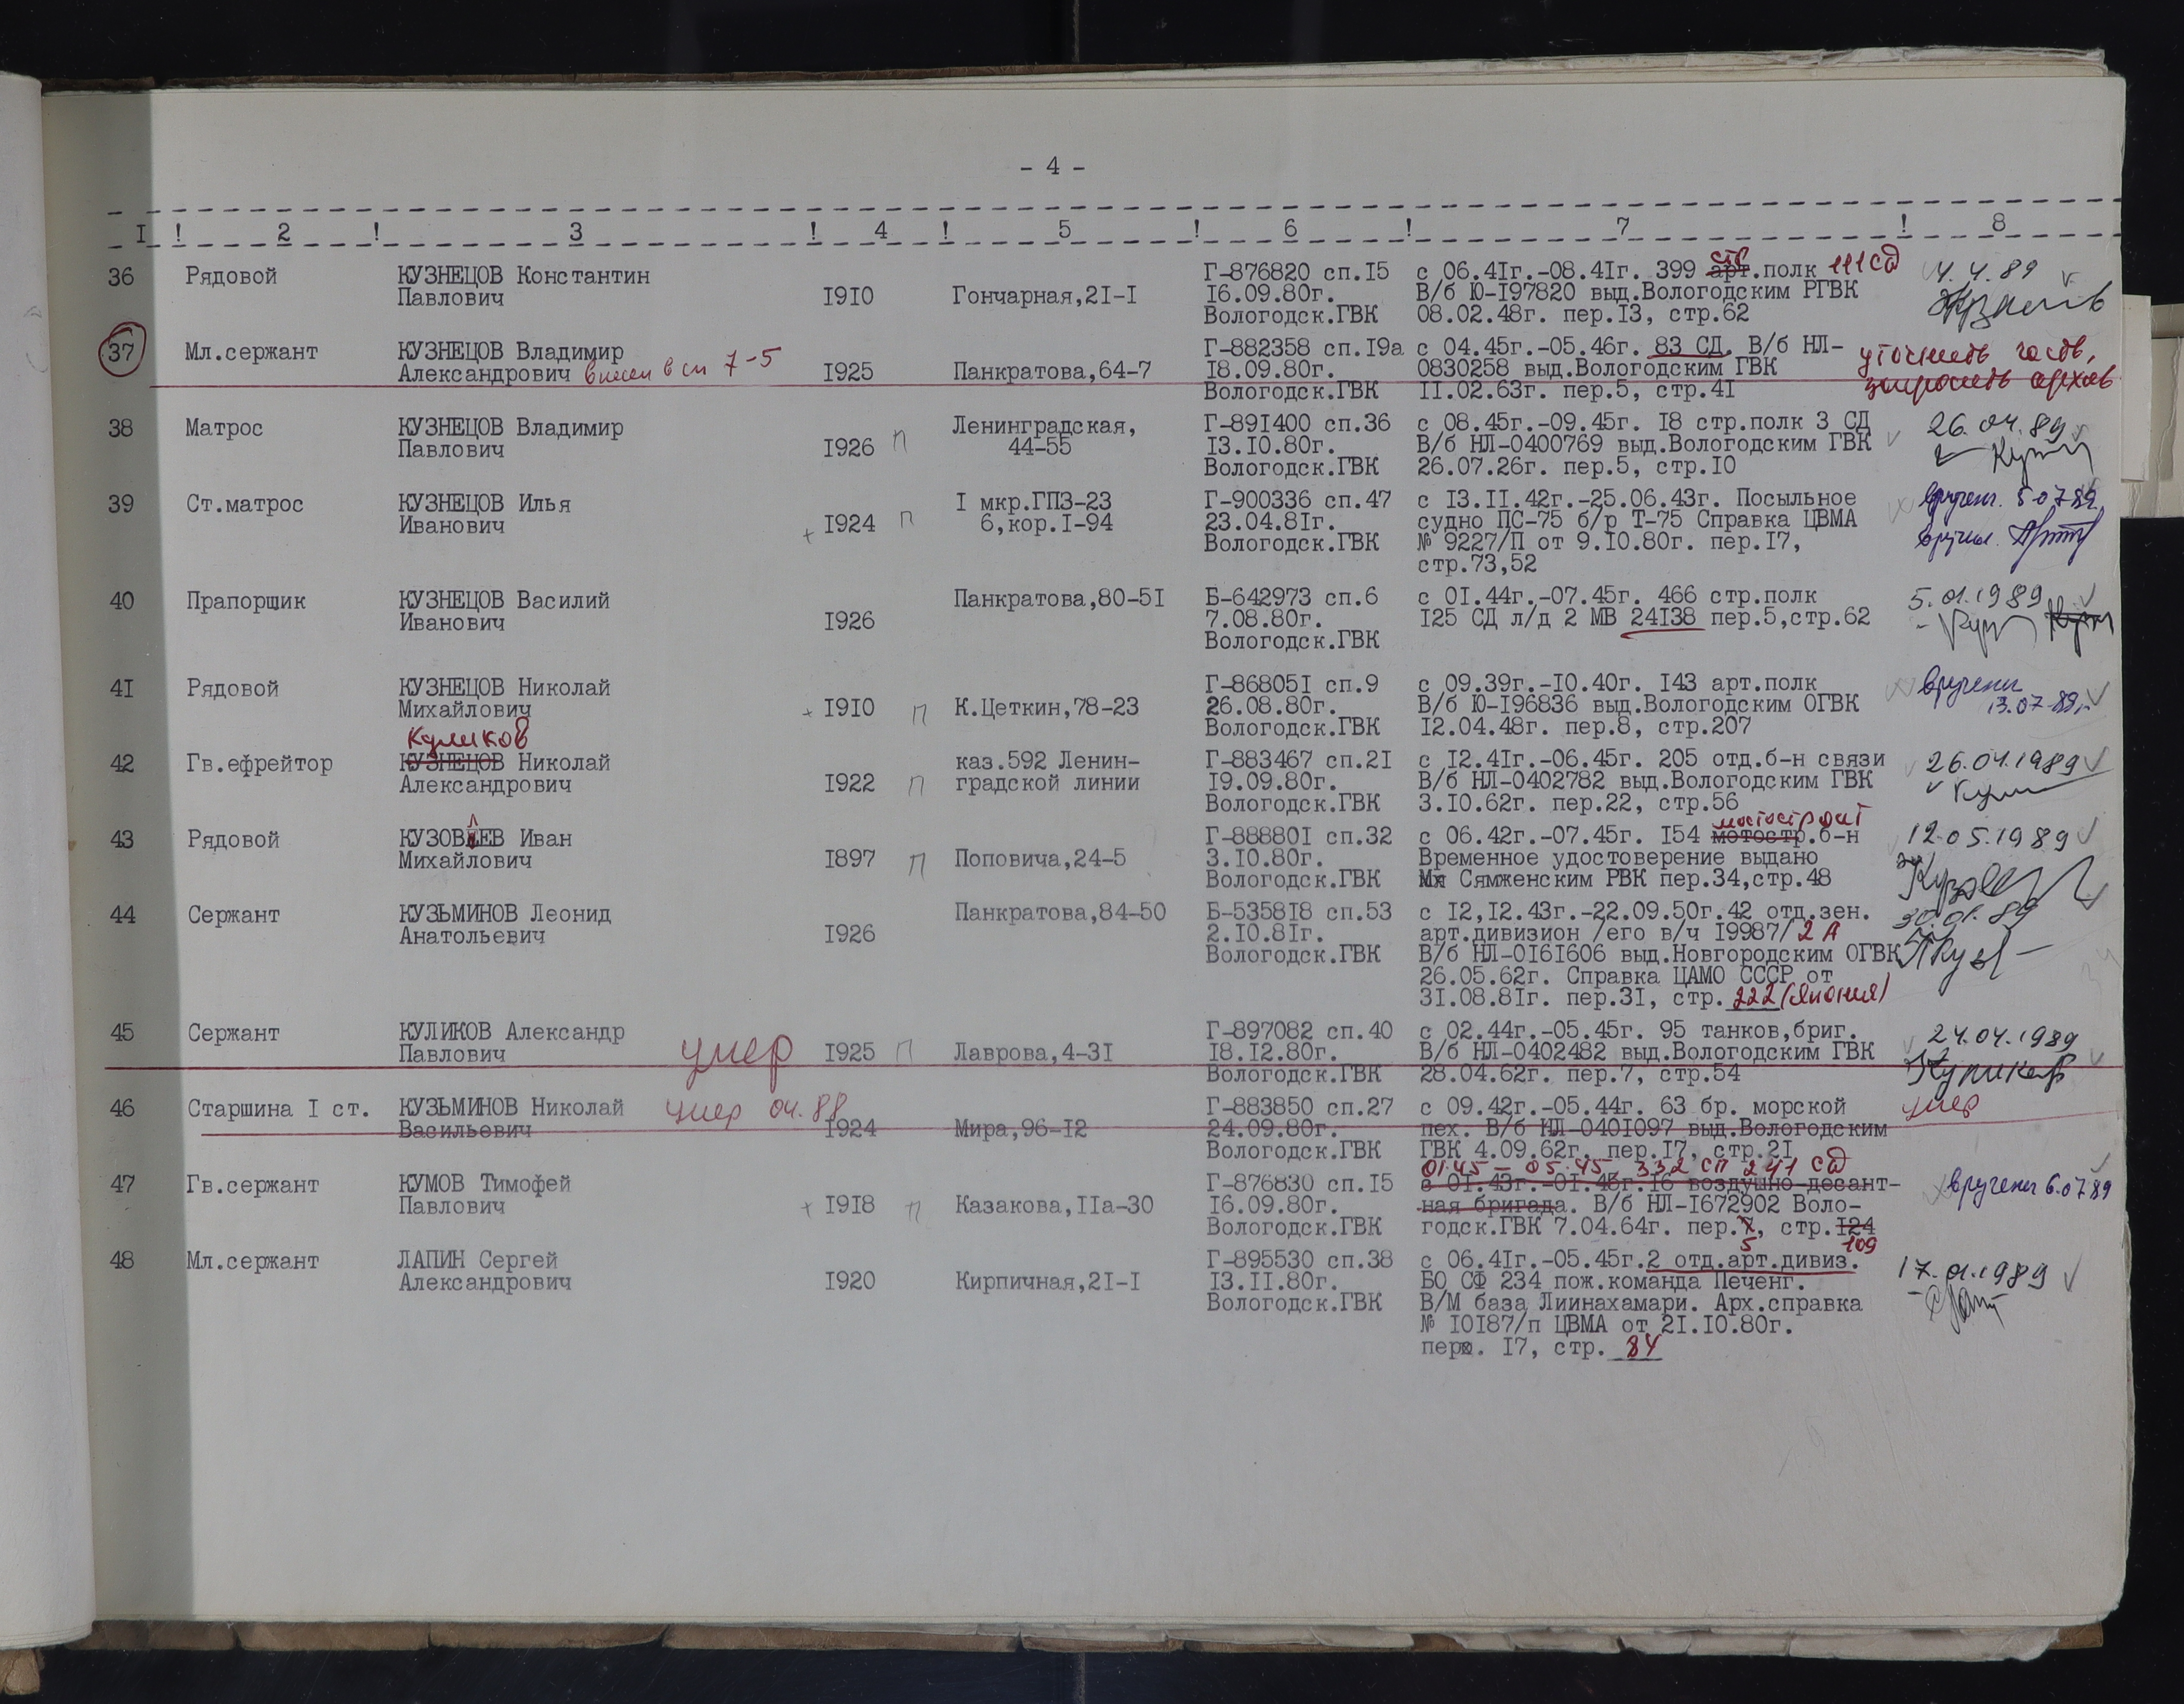 - 4 -
I ! 2 ! 3 ! 4 ! 5 ! 6 ! 7 ! 8
36 Рядовой КУЗНЕЦОВ Константин Г-876820 сп.I5 с 06.4Iг.-08.4Iг. 399 арт.полк стр 111 сд 4.4.89
Павлович I9I0 Гончарная,2I-I I6.09.80г. В/б Ю-I97820 выд.Вологодским РГВК
Вологодск.ГВК 08.02.48г. пер.I3, стр.62
37 Мл.сержант КУЗНЕЦОВ Владимир Г-882358 сп.I9а с 04.45г.-05.46г. 83 СД. В/б НЛ- уточнить часть,
Александрович внесен в сп 7-5 I925 Панкратова,64-7 I8.09.80г. 0830258 выд.Вологодским ГВК запросить архив
Вологодск.ГВК II.02.63г. пер.5, стр.4I
38 Матрос КУЗНЕЦОВ Владимир Ленинградская, Г-89I400 сп.36 с 08.45г.-09.45г. I8 стр.полк 3 СД 26.04.89
Павлович I926 П 44-55 I3.I0.80г. В/б НЛ-0400769 выд.Вологодским ГВК
Вологодск.ГВК 26.07.26г. пер.5, стр.I0
39 Ст.матрос КУЗНЕЦОВ Илья I мкр.ГПЗ-23 Г-900336 сп.47 с I3.II.42г.-25.06.43г. Посыльное вручен. 5.07.89
Иванович I924 П 6,кор.I-94 23.04.8Iг. судно ПС-75 б/р Т-75 Справка ЦВМА вручил.
Вологодск.ГВК № 9227/П от 9.I0.80г. пер.I7,
стр.73,52
40 Прапорщик КУЗНЕЦОВ Василий Панкратова,80-5I Б-642973 сп.6 с 0I.44г.-07.45г. 466 стр.полк 5.01.1989
Иванович I926 7.08.80г. I25 СД л/д 2 МВ 24I38 пер.5,стр.62
Вологодск.ГВК
4I Рядовой КУЗНЕЦОВ Николай Г-86805I сп.9 с 09.39г.-I0.40г. I43 арт.полк вручен
Михайлович I9I0 П К.Цеткин,78-23 26.08.80г. В/б Ю-I96836 выд.Вологодским ОГВК 13.07.89г.
Вологодск.ГВК I2.04.48г. пер.8, стр.207
Куликов
42 Гв.ефрейтор КУЗНЕЦОВ Николай каз.592 Ленин- Г-883467 сп.2I с I2.4Iг.-06.45г. 205 отд.б-н связи 26.04.1989
Александрович I922 П градской линии I9.09.80г. В/б НЛ-0402782 выд.Вологодским ГВК
Вологодск.ГВК 3.I0.62г. пер.22, стр.56
мостострит
43 Рядовой КУЗОВЛЕВ Иван Г-88880I сп.32 с 06.42г.-07.45г. I54 мотостр.б-н 12.05.1989
Михайлович I897 П Поповича,24-5 3.I0.80г. Временное удостоверение выдано
Вологодск.ГВК Сямженским РВК пер.34,стр.48
44 Сержант КУЗЬМИНОВ Леонид Панкратова,84-50 Б-5358I8 сп.53 с I2,I2.43г.-22.09.50г.42 отд.зен. 30.01.89
Анатольевич I926 2.I0.8Iг. арт.дивизион /его в/ч I9987/ 2 А
Вологодск.ГВК В/б НЛ-0I6I606 выд.Новгородским ОГВК
26.05.62г. Справка ЦАМО СССР от
3I.08.8Iг. пер.3I, стр. 222 (Япония)
45 Сержант КУЛИКОВ Александр Г-897082 сп.40 с 02.44г.-05.45г. 95 танков,бриг. 24.04.1989
Павлович умер I925 П Лаврова,4-3I I8.I2.80г. В/б НЛ-0402482 выд.Вологодским ГВК Куликов
Вологодск.ГВК 28.04.62г. пер.7, стр.54
46 Старшина I ст. КУЗЬМИНОВ Николай умер 04.88 Г-883850 сп.27 с 09.42г.-05.44г. 63 бр. морской умер
Васильевич I924 Мира,96-I2 24.09.80г. пех. В/б НЛ-040I097 выд.Вологодским
Вологодск.ГВК ГВК 4.09.62г. пер.I7, стр.2I
01.45 - 05.45 332 сп 241 сд
47 Гв.сержант КУМОВ Тимофей Г-876830 сп.I5 с 0I.43г.-0I.45г.I6 воздушно-десант- вручен 6.07.89
Павлович I9I8 П Казакова,IIа-30 I6.09.80г. ная бригада. В/б НЛ-I672902 Воло-
Вологодск.ГВК годск.ГВК 7.04.64г. пер.7, стр.I24
5 109
48 Мл.сержант ЛАПИН Сергей Г-895530 сп.38 с 06.4Iг.-05.45г.2 отд.арт.дивиз. 17.01.1989
Александрович I920 Кирпичная,2I-I I3.II.80г. БО СФ 234 пож.команда Печенг.
Вологодск.ГВК В/М база Лиинахамари. Арх.справка
№ I0I87/п ЦВМА от 2I.I0.80г.
пер. I7, стр. 84